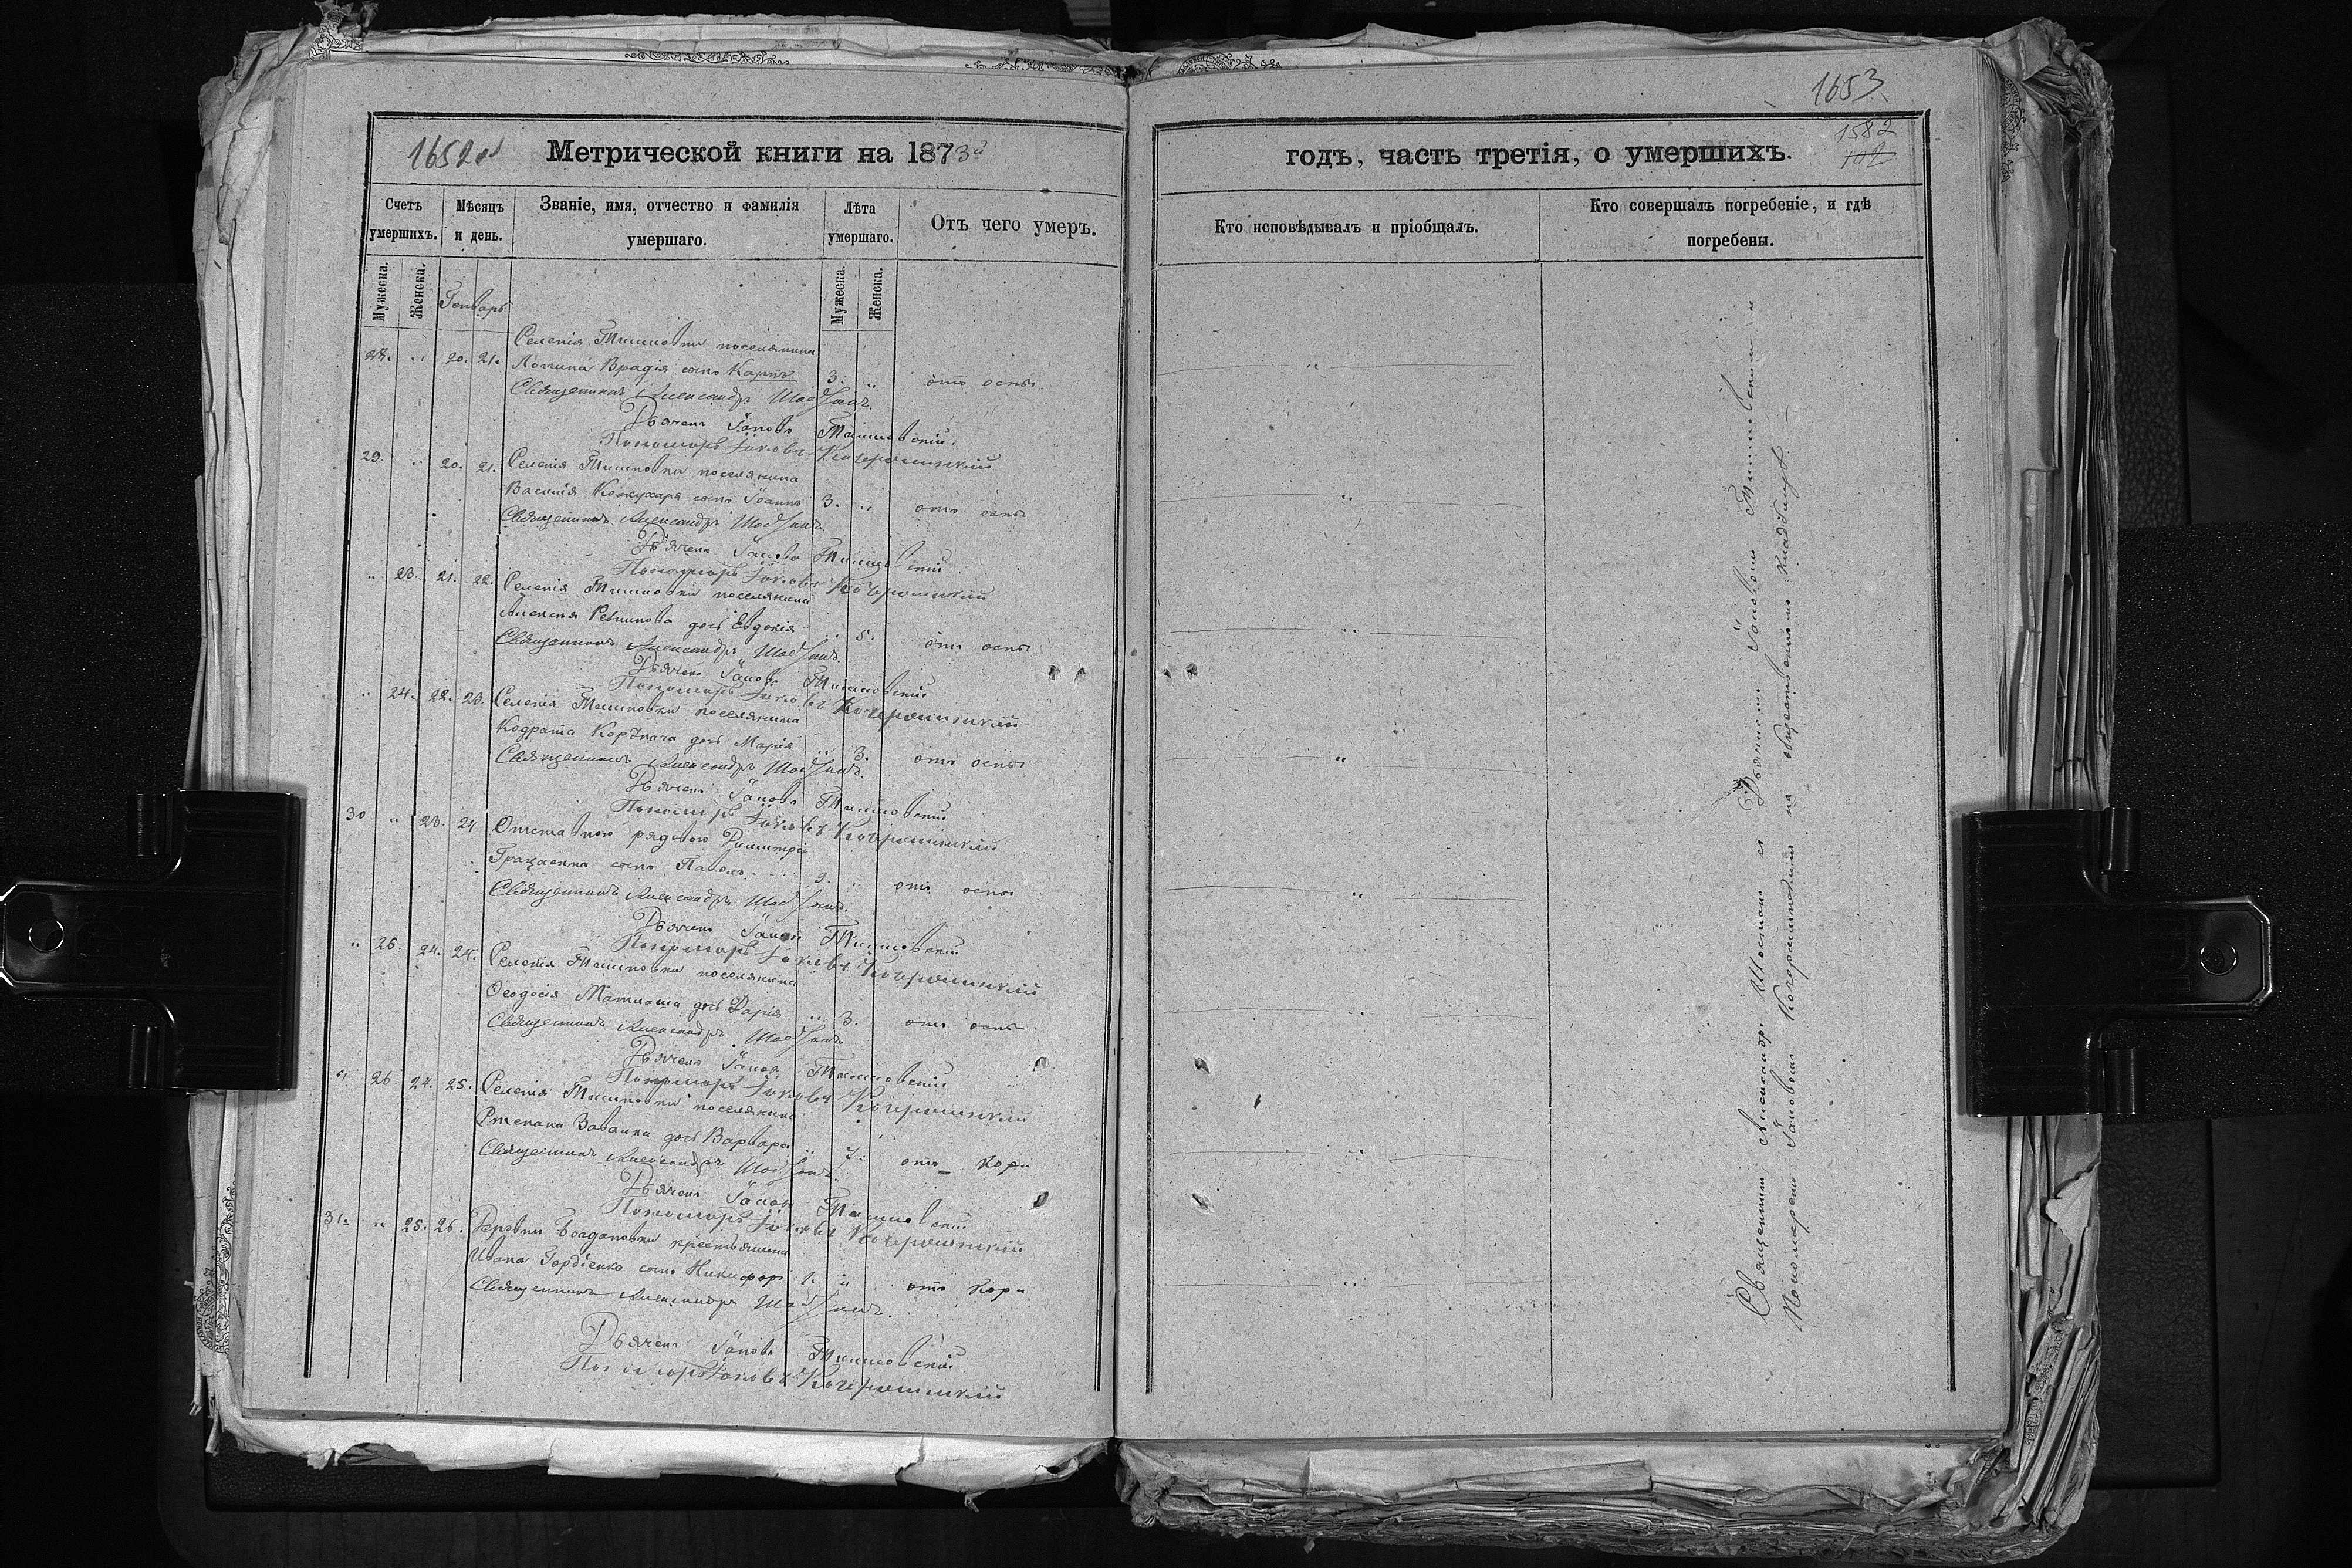 1652
Метрической книги на 1873й
Счетъ умершихъ.
Мѣсяцъ и день.
Званіе, имя, отчество и фамилія умершаго.
Лѣта умершаго.
Отъ чего умеръ.
Мужеска.
Женска.
Генварь
Мужеска.
Женска.
Селенія Тишковки поселянина
28. „ 20. 21. Врадія сынъ Карпъ 3. „ отъ оспы.
Священникъ Александръ
Дьячекъ Іаковъ Тишковскій.
Пономарь Іаковъ
29. „ 20. 21. Селенія Тишковки поселянина
Василія Кожухаря сынъ Іоаннъ 3. „ отъ оспы
Священникъ Александръ
Дьячекъ Іаковъ Тишковскій
Пономарь Іаковъ
„ 23. 21. 22. Селенія Тишковки поселянина
Алексія дочь Евдокія „ 5. отъ оспы
Священникъ Александръ
Дьячекъ Іаковъ Тишковскій
Пономарь Іаковъ
„ 24. 22. 23. Селенія Тишковки поселянина
Кодрата дочь Марія „ 3. отъ оспы
Священникъ Александръ
Дьячекъ Іаковъ Тишковскій
Пономарь Іаковъ
30 „ 23. 24 Отставного рядового Димитрія
сынъ Павелъ 9. „ отъ оспы
Священникъ Александръ
Дьячекъ Іаковъ Тишковскій
Пономарь Іаковъ
„ 25. 24. 24. Селенія Тишковки поселянина
Ѳеодосія дочь Дарія „ 3. отъ оспы
Священникъ Александръ
Дьячекъ Іаковъ Тишковскій
Пономарь Іаковъ
„ 26 24. 25. Селенія Тишковки поселянина
Степана дочь Варвара „ 7. отъ кори
Священникъ Александръ
Дьячекъ Іаковъ Тишковскій
Пономарь Іаковъ
31. „ 25. 26. Деревни Богдановки крестьянина
Ивана Гордіенко сынъ Никифоръ 1. „ отъ кори
Священникъ Александръ
Дьячекъ Іаковъ Тишковскій
Пономарь Іаковъ
1653
годъ, часть третія, о умершихъ.
1582
102
Кто исповѣдывалъ и пріобщалъ.
Кто совершалъ погребеніе, и гдѣ погребены.
„
„
„
„
„
„
„
„
Священникъ Александръ съ Дьячкомъ Іаковомъ Тишковскимъ и
Пономаремъ Іаковомъ на общественномъ кладбищѣ.